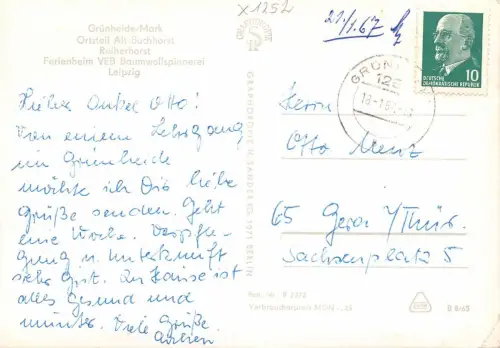 X1252
21/1.67
Grünheide-Mark
Ortsteil Alt Buchhorst
Reiherhorst
Ferienheim VEB Baumwollspinnerei
Leipzig
GRÜN
125
18.-1.6
10
DEUTSCHE
DEMOKRATISCHE REPUBLIK
Lieber Onkel Otto!
Von einem Lehrgang
in Grünheide
möchte ich Dir liebe
Grüße senden. Geht
eine Woche. Verpfle-
gung u. Unterkunft
sehr gut. Zu Hause ist
alles gesund und
munter. Viele Grüße
Herrn
Otto Menz
65 Gera /Thür.
Sachsenplatz 5
GRAPHOKOPIE H. SANDER KG, 1971 BERLIN
Best.-Nr. F 2372
Verbraucherpreis MDN -,20
B 6/65